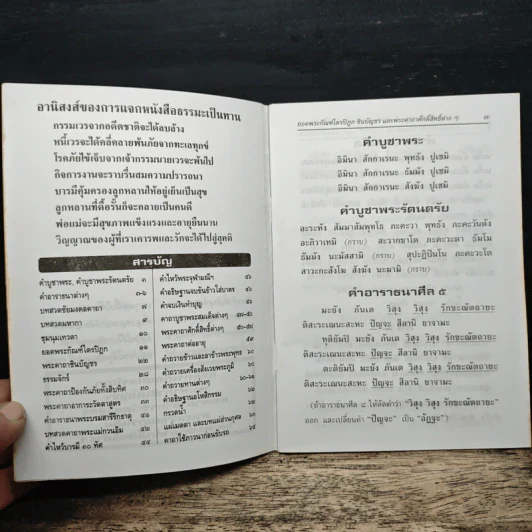 อานิสงส์ของการแจกหนังสือธรรมะเป็นทาน
กรรมเวรจากอดีตชาติจะได้ลบล้าง
หนี้เวรจะได้คลี่คลายพ้นภัยจากทะเลทุกข์
โรคภัยไข้เจ็บจากเจ้ากรรมนายเวรจะพ้นไป
กิจการงานจะราบรื่นสมความปรารถนา
บารมีคุ้มครองลูกหลานให้อยู่เย็นเป็นสุข
ลูกหลานที่ดื้อรั้นก็จะกลายเป็นคนดี
พ่อแม่จะมีสุขภาพแข็งแรงและอายุยืนนาน
วิญญาณของผู้ที่เราเคารพและรักจะได้ไปสู่สุคติ
สารบัญ
คำบูชาพระ, คำบูชาพระรัตนตรัย ๓
คำอาราธนาต่างๆ ๓-๖
บทสวดชัยมงคลคาถา ๗
บทสวดมหากา ๙
ชุมนุมเทวดา ๑๐
ยอดพระกัณฑ์ไตรปิฎก ๑๑
พระคาถาชินบัญชร ๒๒
ธรรมจักร์ ๒๘
พระคาถาป้องกันภัยทั้งสิบทิศ
พระคาถาอาการะวัตตาสูตร
คำอาราธนาพระบรมสารีริกธาตุ
บทสวดคาถาพระแม่กวนอิม ๔๒
คำไหว้บารมี ๓๐ ทัศ ๔๔
คำไหว้พระจุฬามณีฯ
คำอธิษฐานจบขันข้าวใส่บาตร
คำจบเงินทำบุญ
คาถาบูชาพระสมเด็จต่างๆ
พระคาถาศักดิ์สิทธิ์ต่างๆ
พระคาถาต่ออายุ
คำถวายข้าวและลาข้าวพระพุทธ
คำถวายเครื่องสังเวยพระภูมิ
คำถวายทานต่างๆ ๖๐-๖๑
คำอธิษฐานอโหสิกรรม
กรวดน้ำ
แผ่เมตตา และบทแผ่ส่วนกุศล
คาถาใช้ภาวนาก่อนขับรถ
ยอดพระกัณฑ์ไตรปิฎก ชินบัญชร และพระคาถาศักดิ์สิทธิ์ต่าง ๆ ๓
คำบูชาพระ
อิมินา สักกาเรนะ พุทธัง ปูเชมิ
อิมินา สักกาเรนะ ธัมมัง ปูเชมิ
อิมินา สักกาเรนะ สังฆัง ปูเชมิ
คำบูชาพระรัตนตรัย
อะระหัง สัมมาสัมพุทโธ ภะคะวา พุทธัง ภะคะวันตัง
อะภิวาเทมิ (กราบ) สะวากขาโต ภะคะวะตา ธัมโม
ธัมมัง นะมัสสามิ (กราบ) สุปะฏิปันโน ภะคะวะโต
สาวะกะสังโฆ สังฆัง นะมามิ (กราบ)
คำอาราธนาศีล ๕
มะยัง ภันเต วิสุง วิสุง รักขะณัตถายะ
ติสะระเณนะสะหะ ปัญจะ สีลานิ ยาจามะ
ทุติยัมปิ มะยัง ภันเต วิสุง วิสุง รักขะณัตถายะ
ติสะระเณนะสะหะ ปัญจะ สีลานิ ยาจามะ
ตะติยัมปิ มะยัง ภันเต วิสุง วิสุง รักขะณัตถายะ
ติสะระเณนะสะหะ ปัญจะ สีลานิ ยาจามะ
(ถ้าอาราธนาศีล ๘ ให้ตัดคำว่า “วิสุง วิสุง รักขะณัตถายะ”
ออก และเปลี่ยนคำ “ปัญจะ” เป็น “อัฏฐะ”)